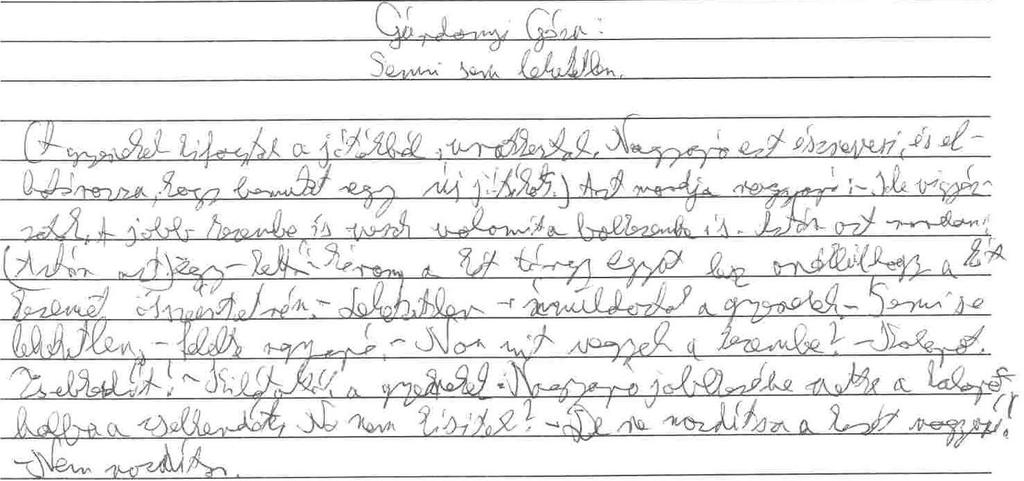 Gárdonyi Géza:
Semmi sem lehetetlen.
(A gyerekek kifogytak a játékból, unatkoztak. Nagyapó ezt észreveszi, és el-
határozza, hogy bemutat egy új játékot.) Azt mondja nagyapó: - Ide vigyáz-
zatok. A jobb kezembe is veszek valamit a balkezembe is. Aztán azt mondom:
(Aztán azt) Egy - kettő - három, a két tárgy együtt lesz anélkül hogy a két
kezemet összetenném. - Lehetetlen - ámuldoztak a gyerekek. - Semmi se
lehetetlen, - felelte nagyapó. - Non mit vegyek a kezembe? - Kalapot.
Zsebkendőt! - a gyerekek. Nagyapó jobbkezébe vette a kalapot
balba a zsebkendőt. No nem hiszitek? - De ne mozdítsa a kezét nagyapó!
- Nem mozdítom.